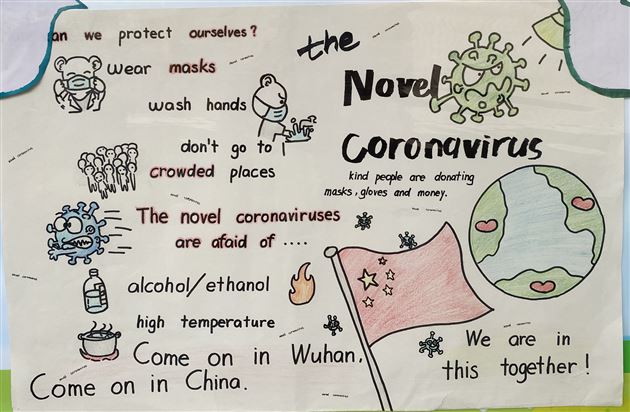 an we protect ourselves?
wear masks
wash hands
don't go to
crowded places
The novel coronaviruses
are afaid of ....
alcohol/ethanol
high temperature
Come on in Wuhan.
Come on in China.
the
Novel
Coronavirus
kind people are donating
masks, gloves and money.
We are in
this together!